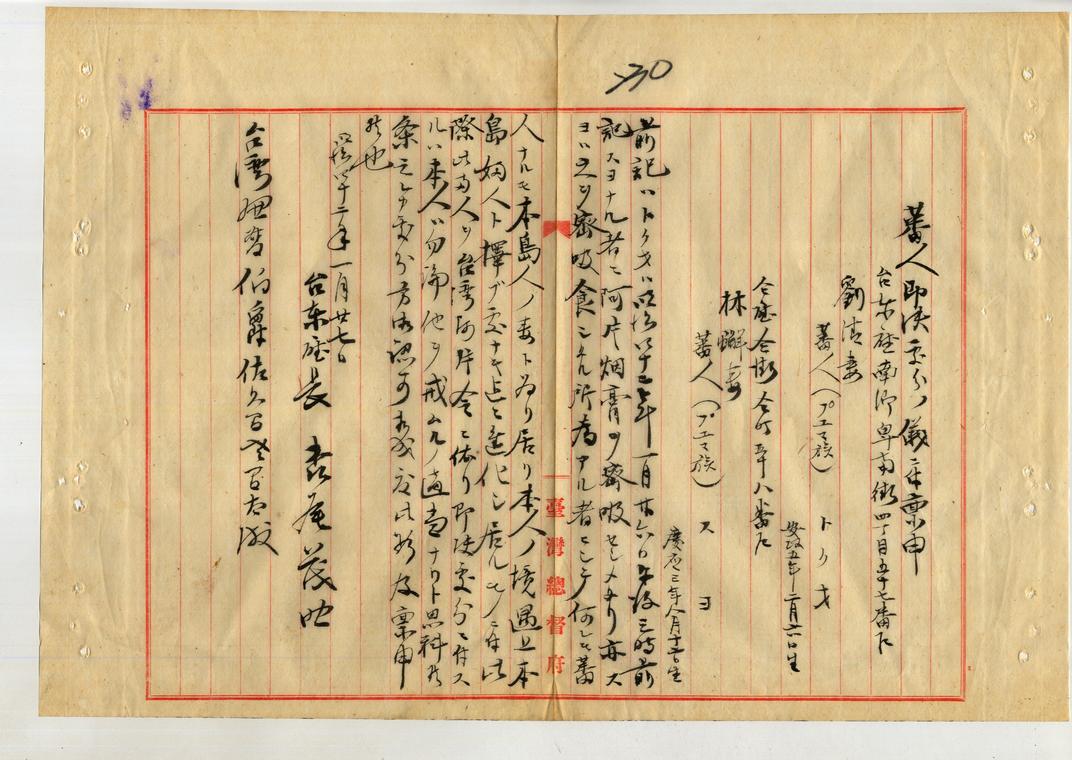 730
蕃人即決処分ノ儀ニ付稟申
台東庁南郷卑南街四丁目五十七番戸
劉清妻
蕃人（プユマ族）
トクオ
安政五年二月六日生
仝庁仝街仝丁五十八番戸
林 妻
蕃人（プユマ族）
スヨ
慶応三年八月十二日生
前記ハトクオハ明治四十二年一月廿六日午後三時前
記スヨナル者ニ阿片烟膏ヲ密吸セシメタリ亦ス
ヨハ之ヲ密吸食シタル所為アル者ニシテ何レモ蕃
人ナルモ本島人ノ妻ト為リ居リ本人ノ境遇上本
島婦人ト擇ブ処ナキ迄ニ進化シ居ルモノニ付此
際此両人ヲ台湾阿片令ニ依リ即決処分ニ付ス
ルハ本人ハ勿論他ヲ戒ムルノ適当ナリト思料候
条至急処分方御認可相成度此段及稟申
候也
明治四十二年一月廿七日
台東庁長 森尾茂助
台湾総督伯爵佐久間左馬太殿
臺灣總督府